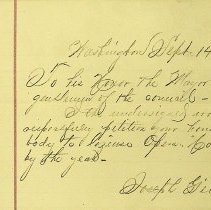 Washington Sept. 14
To his Honor the Mayor
gentlemen of the council -
I the undersigned
respectfully petition your hon
body to license Opera.
by the year -
Joseph